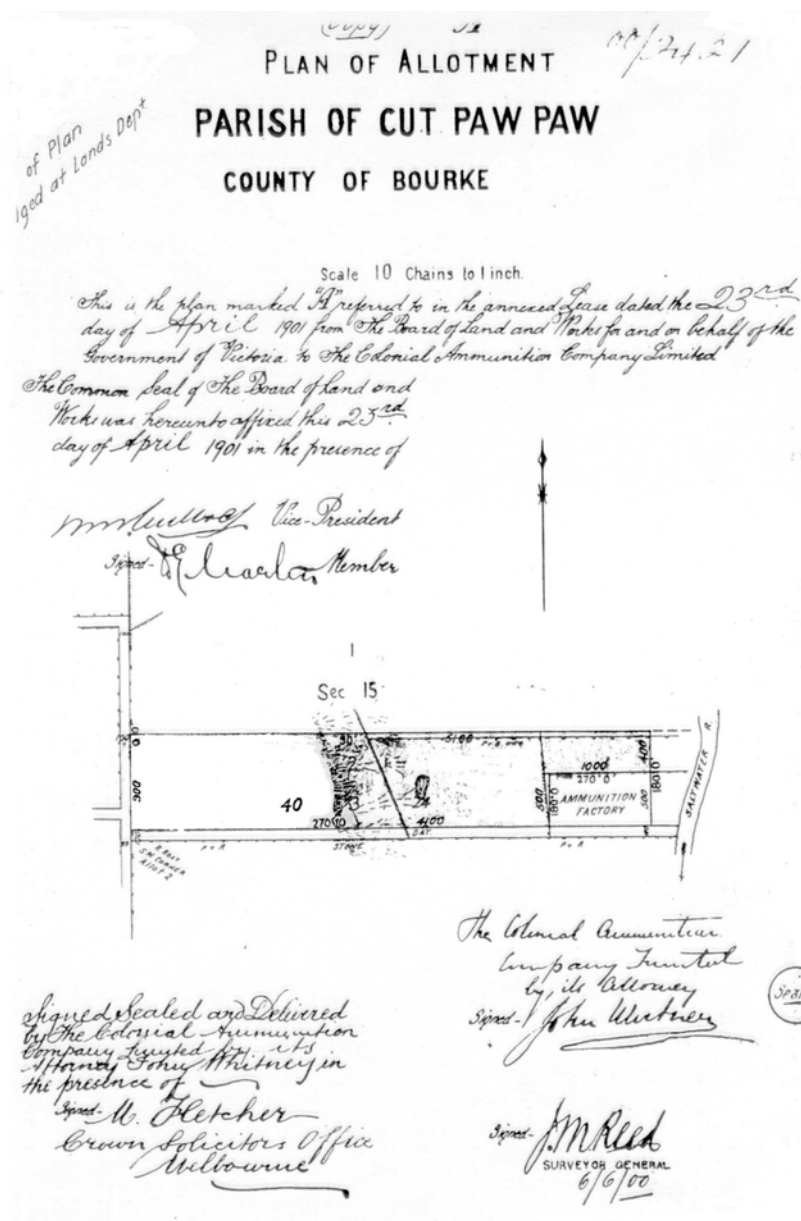 (Copy)
00/2421
PLAN OF ALLOTMENT
PARISH OF CUT PAW PAW
COUNTY OF BOURKE
of Plan
lged at Lands Dept
Scale 10 Chains to 1 inch.
This is the plan marked "A" referred to in the annexed Lease dated the 23rd
day of April 1901 from The Board of Land and Works for and on behalf of the
Government of Victoria to The Colonial Ammunition Company Limited
The Common Seal of The Board of Land and
Works was hereunto affixed this 23rd
day of April 1901 in the presence of
Vice-President
Signed- Member
1
Sec 15
90
6100
400
1000
270° 0'
180° 0'
SALTWATER R.
900
40
500
180° 0'
AMMUNITION
FACTORY
500
270° 0'
4100
DAY
P & R
STONE
P & R
R POST
S.W. CORNER
ALLOT 2
The Colonial Ammunition
Company Limited
by its Attorney
Signed- John Whitney
Seal
Signed Sealed and Delivered
by The Colonial Ammunition
Company Limited by its
Attorney John Whitney in
the presence of
Signed- M. Fletcher
Crown Solicitors Office
Melbourne
Signed- J.M Reed
SURVEYOR GENERAL
6/6/00